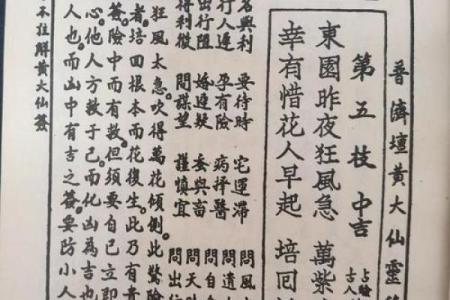 普濟壇黃大仙靈
第五枝 中吉 占驗 古人
東園昨夜狂風急 萬紫
幸有惜花人早起 培回
名與利 要待時 宅運滯 問風
行人遲 孕有險 病拜醫 問遺
出行阻 婚遲疑 蚕與畜 問自
得利微 問謀望 謹慎宜 問天
問出行
狂風太急。吹得萬花傾側。此驚險
者。培回根本。而花復生。此乃有貴
簽。險中而有救。但須要自己立即
心。他人方救于己。而化凶為吉也
人也。而凶中有吉之簽。要防小人
本注解黃大仙簽